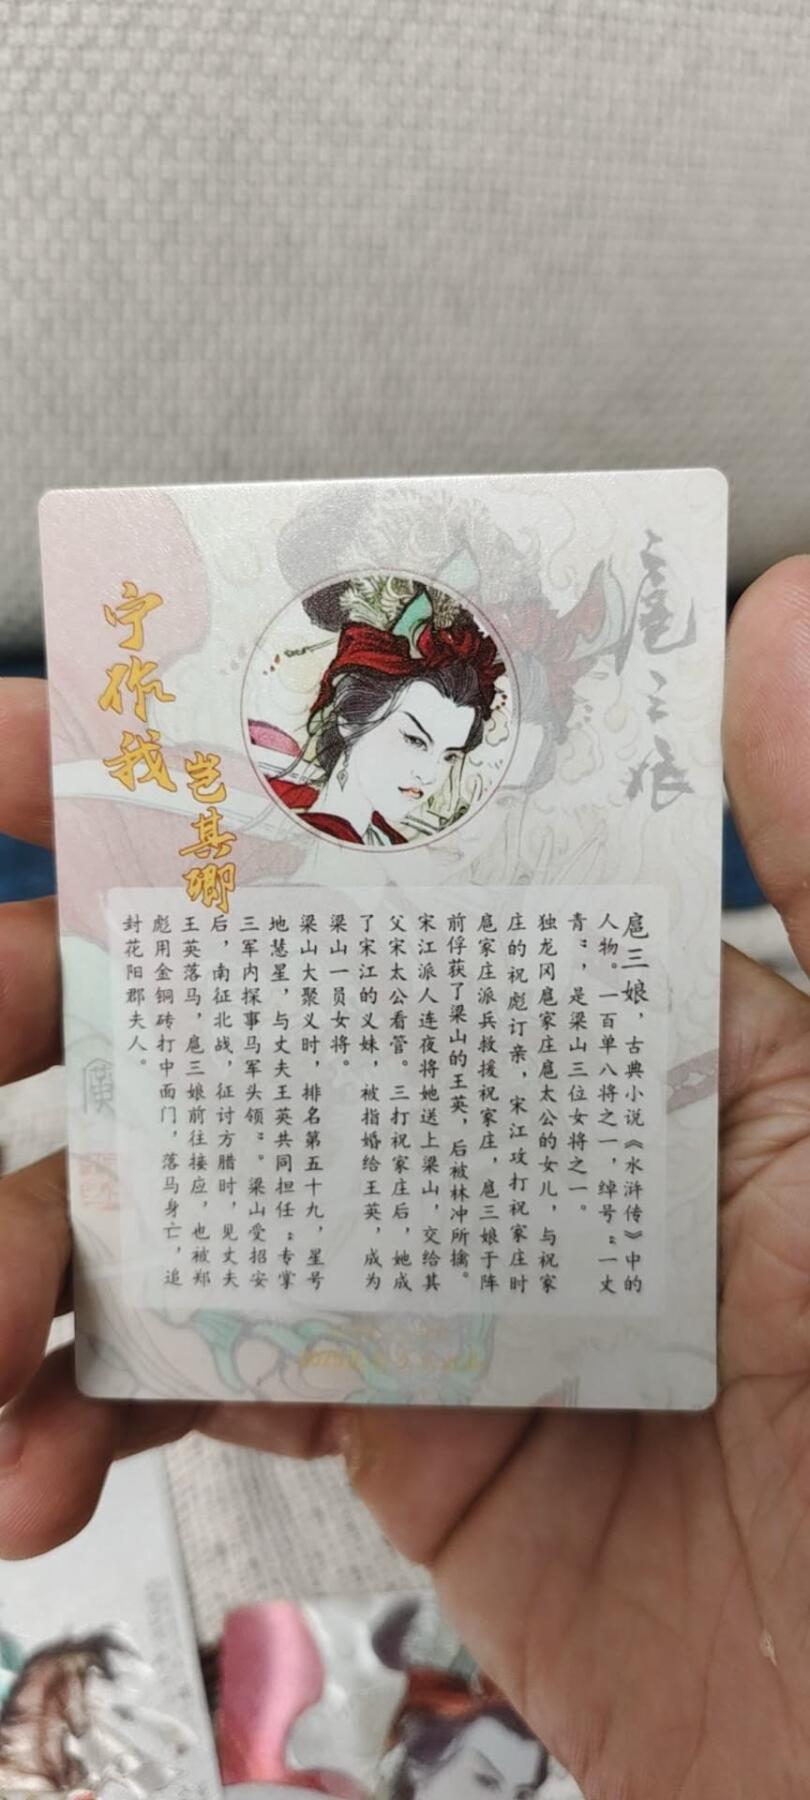 扈三娘
宁作我
岂其卿
扈三娘，古典小说《水浒传》中的
人物。一百单八将之一，绰号"一丈
青"，是梁山三位女将之一。
独龙冈扈家庄扈太公的女儿，与祝家
庄的祝彪订亲，宋江攻打祝家庄时
扈家庄派兵救援祝家庄，扈三娘于阵
前俘获了梁山的王英，后被林冲所擒。
宋江派人连夜将她送上梁山，交给其
父宋太公看管。三打祝家庄后，她成
了宋江的义妹，被指婚给王英，成为
梁山一员女将。
梁山大聚义时，排名第五十九，星号
地慧星，与丈夫王英共同担任"专掌
三军内探事马军头领"。梁山受招安
后，南征北战，征讨方腊时，见丈夫
王英落马，扈三娘前往接应，也被郑
彪用金铜砖打中面门，落马身亡，追
封花阳郡夫人。